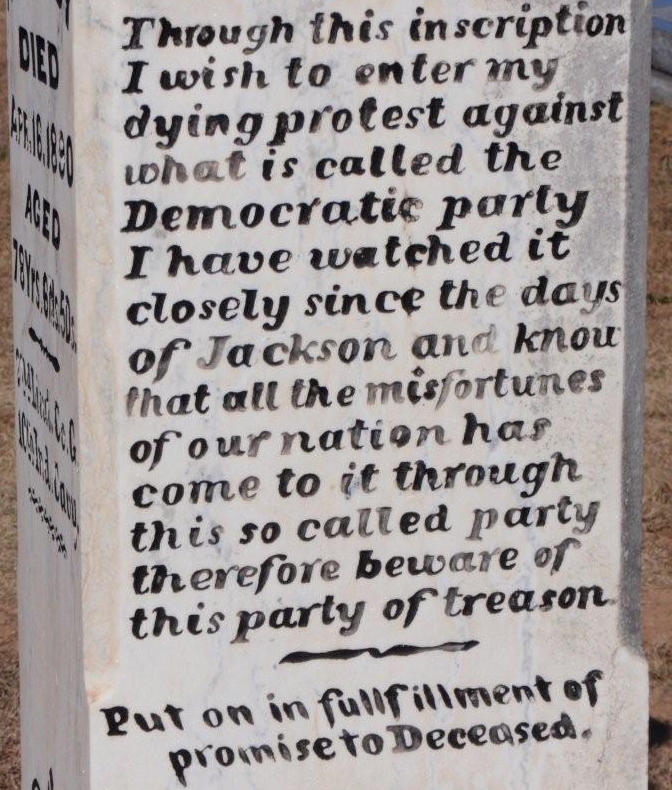 DIED
APR.16,1890
AGED
78Yrs.6ds.5Ds.
Through this inscription
I wish to enter my
dying protest against
what is called the
Democratic party
I have watched it
closely since the days
of Jackson and know
that all the misfortunes
of our nation has
come to it through
this so called party
therefore beware of
this party of treason.
Put on in fullfillment of
promise to Deceased.